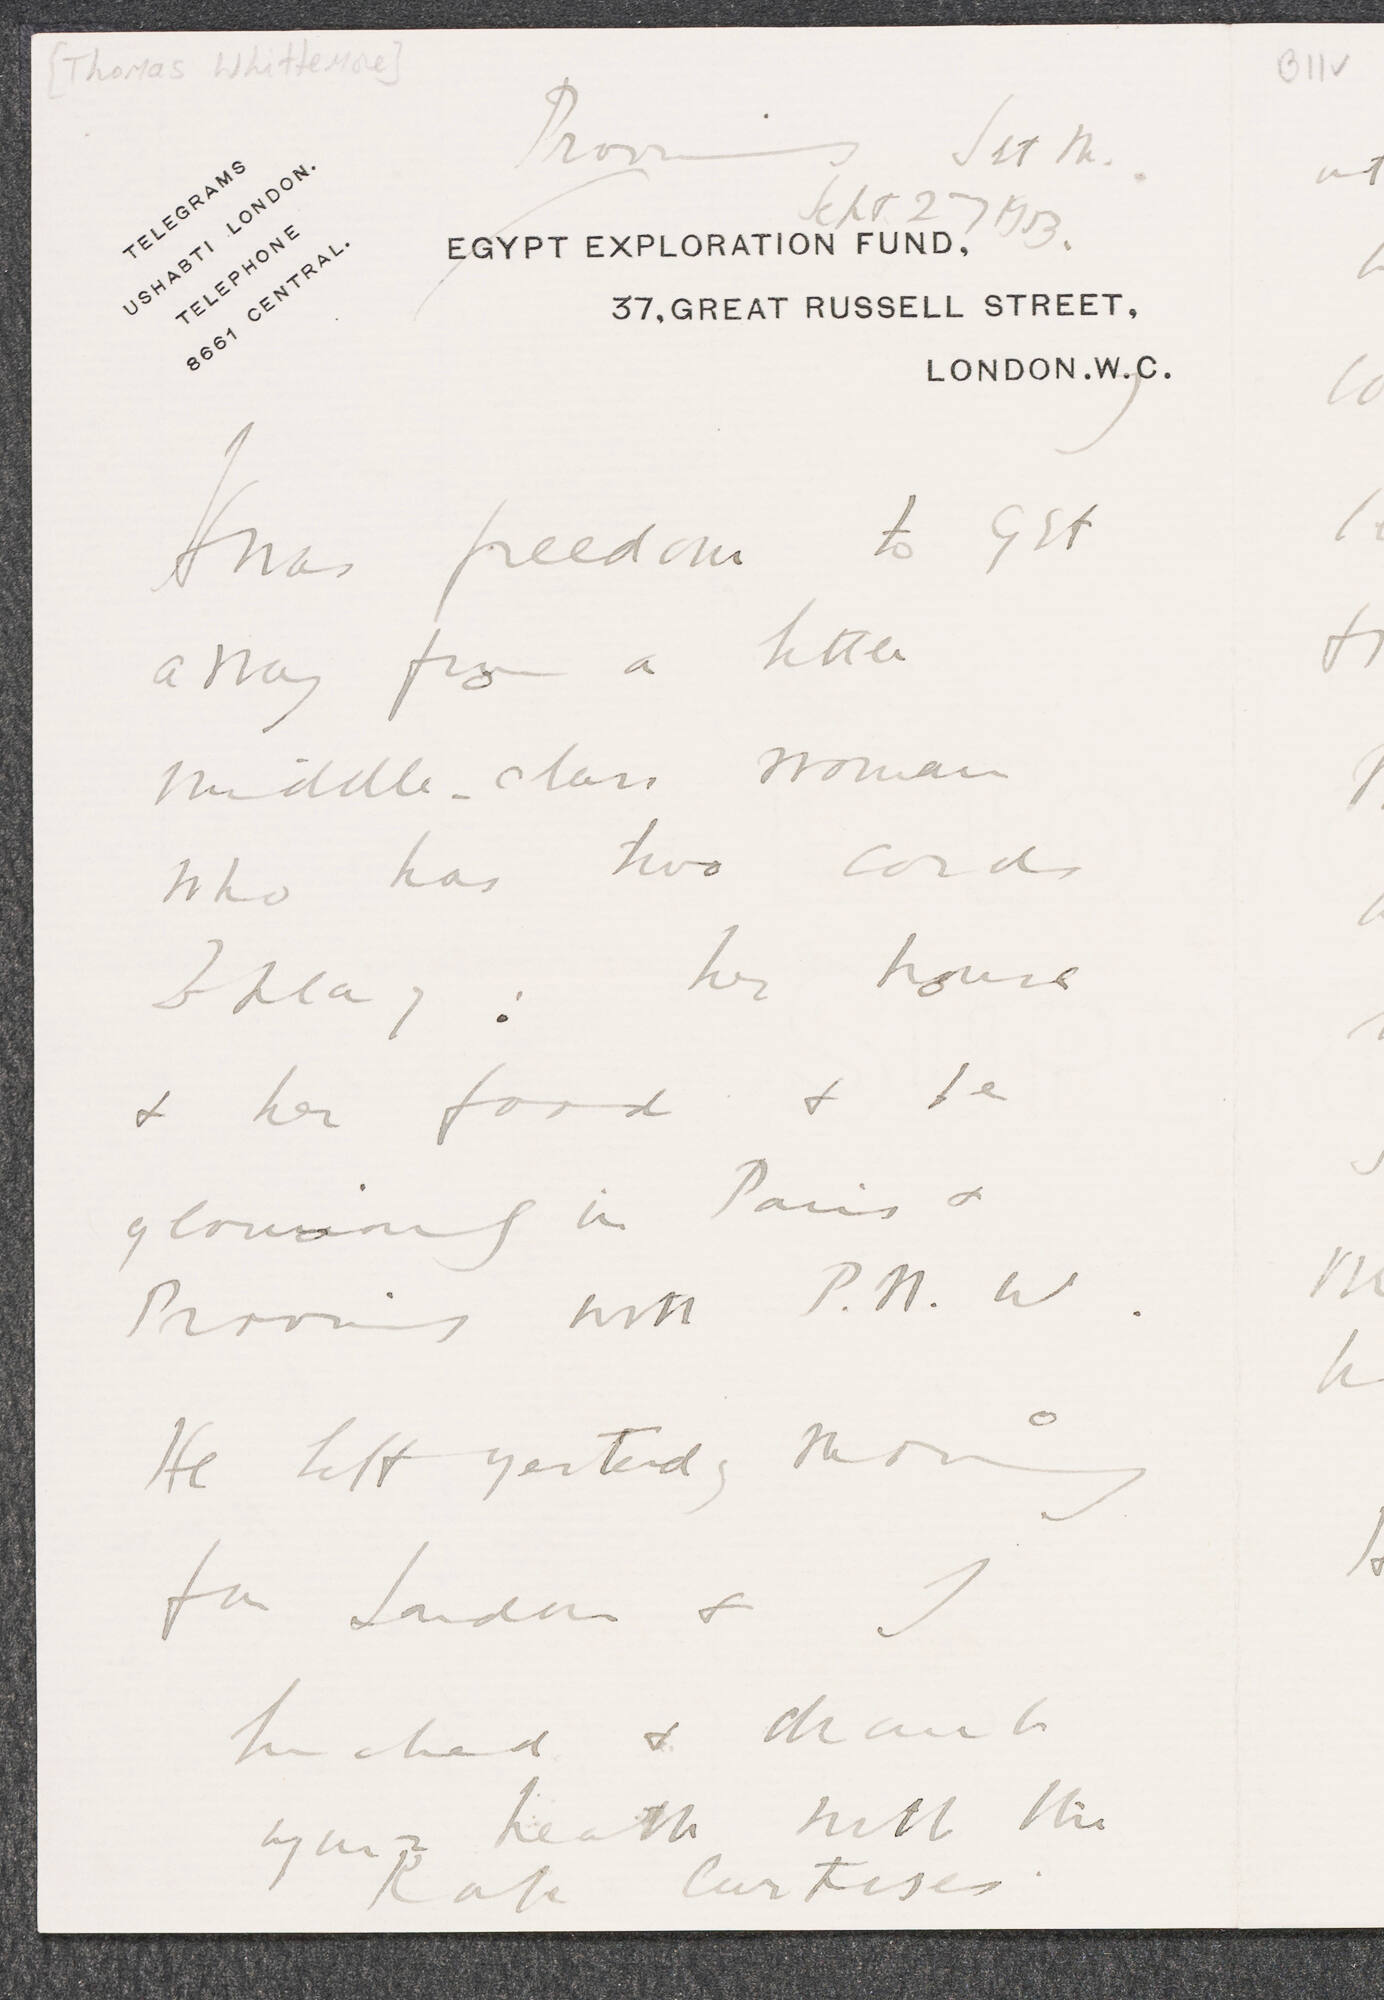 [Thomas Whittemore]
B11V
Provins
Sept 27 1913.
TELEGRAMS
USHABTI LONDON.
TELEPHONE
8661 CENTRAL.
EGYPT EXPLORATION FUND,
37, GREAT RUSSELL STREET,
LONDON. W.C.
It was freedom to get
away from a little
middle-class woman
who has two cards
to play: her house
& her food & be
in Paris &
Provins with P.N.W.
He left yesterday morning
for London & I
lunched & drank
your health with the
Ralph Curtises.